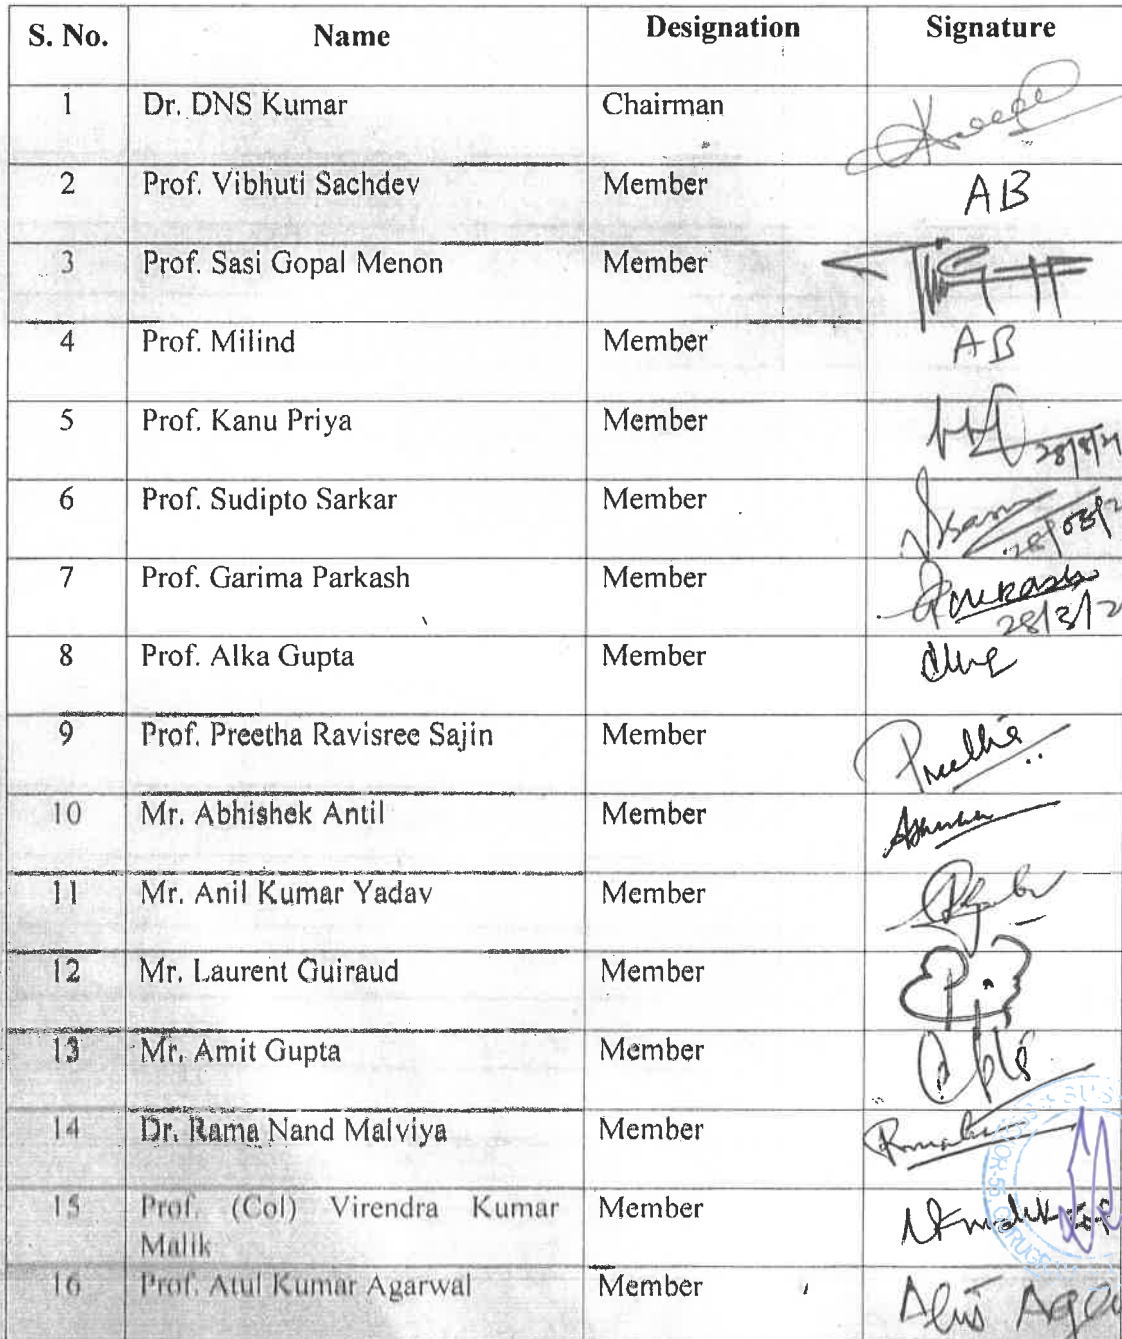 S. No. Name Designation Signature
1 Dr. DNS Kumar Chairman
2 Prof. Vibhuti Sachdev Member AB
3 Prof. Sasi Gopal Menon Member
4 Prof. Milind Member AB
5 Prof. Kanu Priya Member
6 Prof. Sudipto Sarkar Member
28/03/2
7 Prof. Garima Parkash Member
28/3/2
8 Prof. Alka Gupta Member
9 Prof. Preetha Ravisree Sajin Member Preetha
10 Mr. Abhishek Antil Member
11 Mr. Anil Kumar Yadav Member
12 Mr. Laurent Guiraud Member
13 Mr. Amit Gupta Member
14 Dr. Rama Nand Malviya Member
15 Prof. (Col) Virendra Kumar Member
Malik
16 Prof. Atul Kumar Agarwal Member